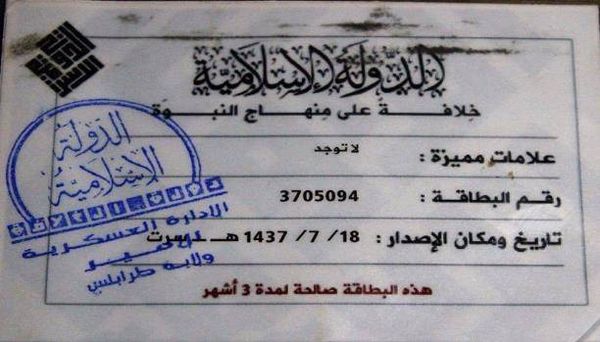 الدولة الإسلامية
خلافة على منهاج النبوة
علامات مميزة : لا توجد
رقم البطاقة : 3705094
تاريخ ومكان الإصدار : 18 / 7 / 1437 هـ سرت
هذه البطاقة صالحة لمدة 3 أشهر
الدولة
الإسلامية
الإدارة العسكرية
ولاية طرابلس